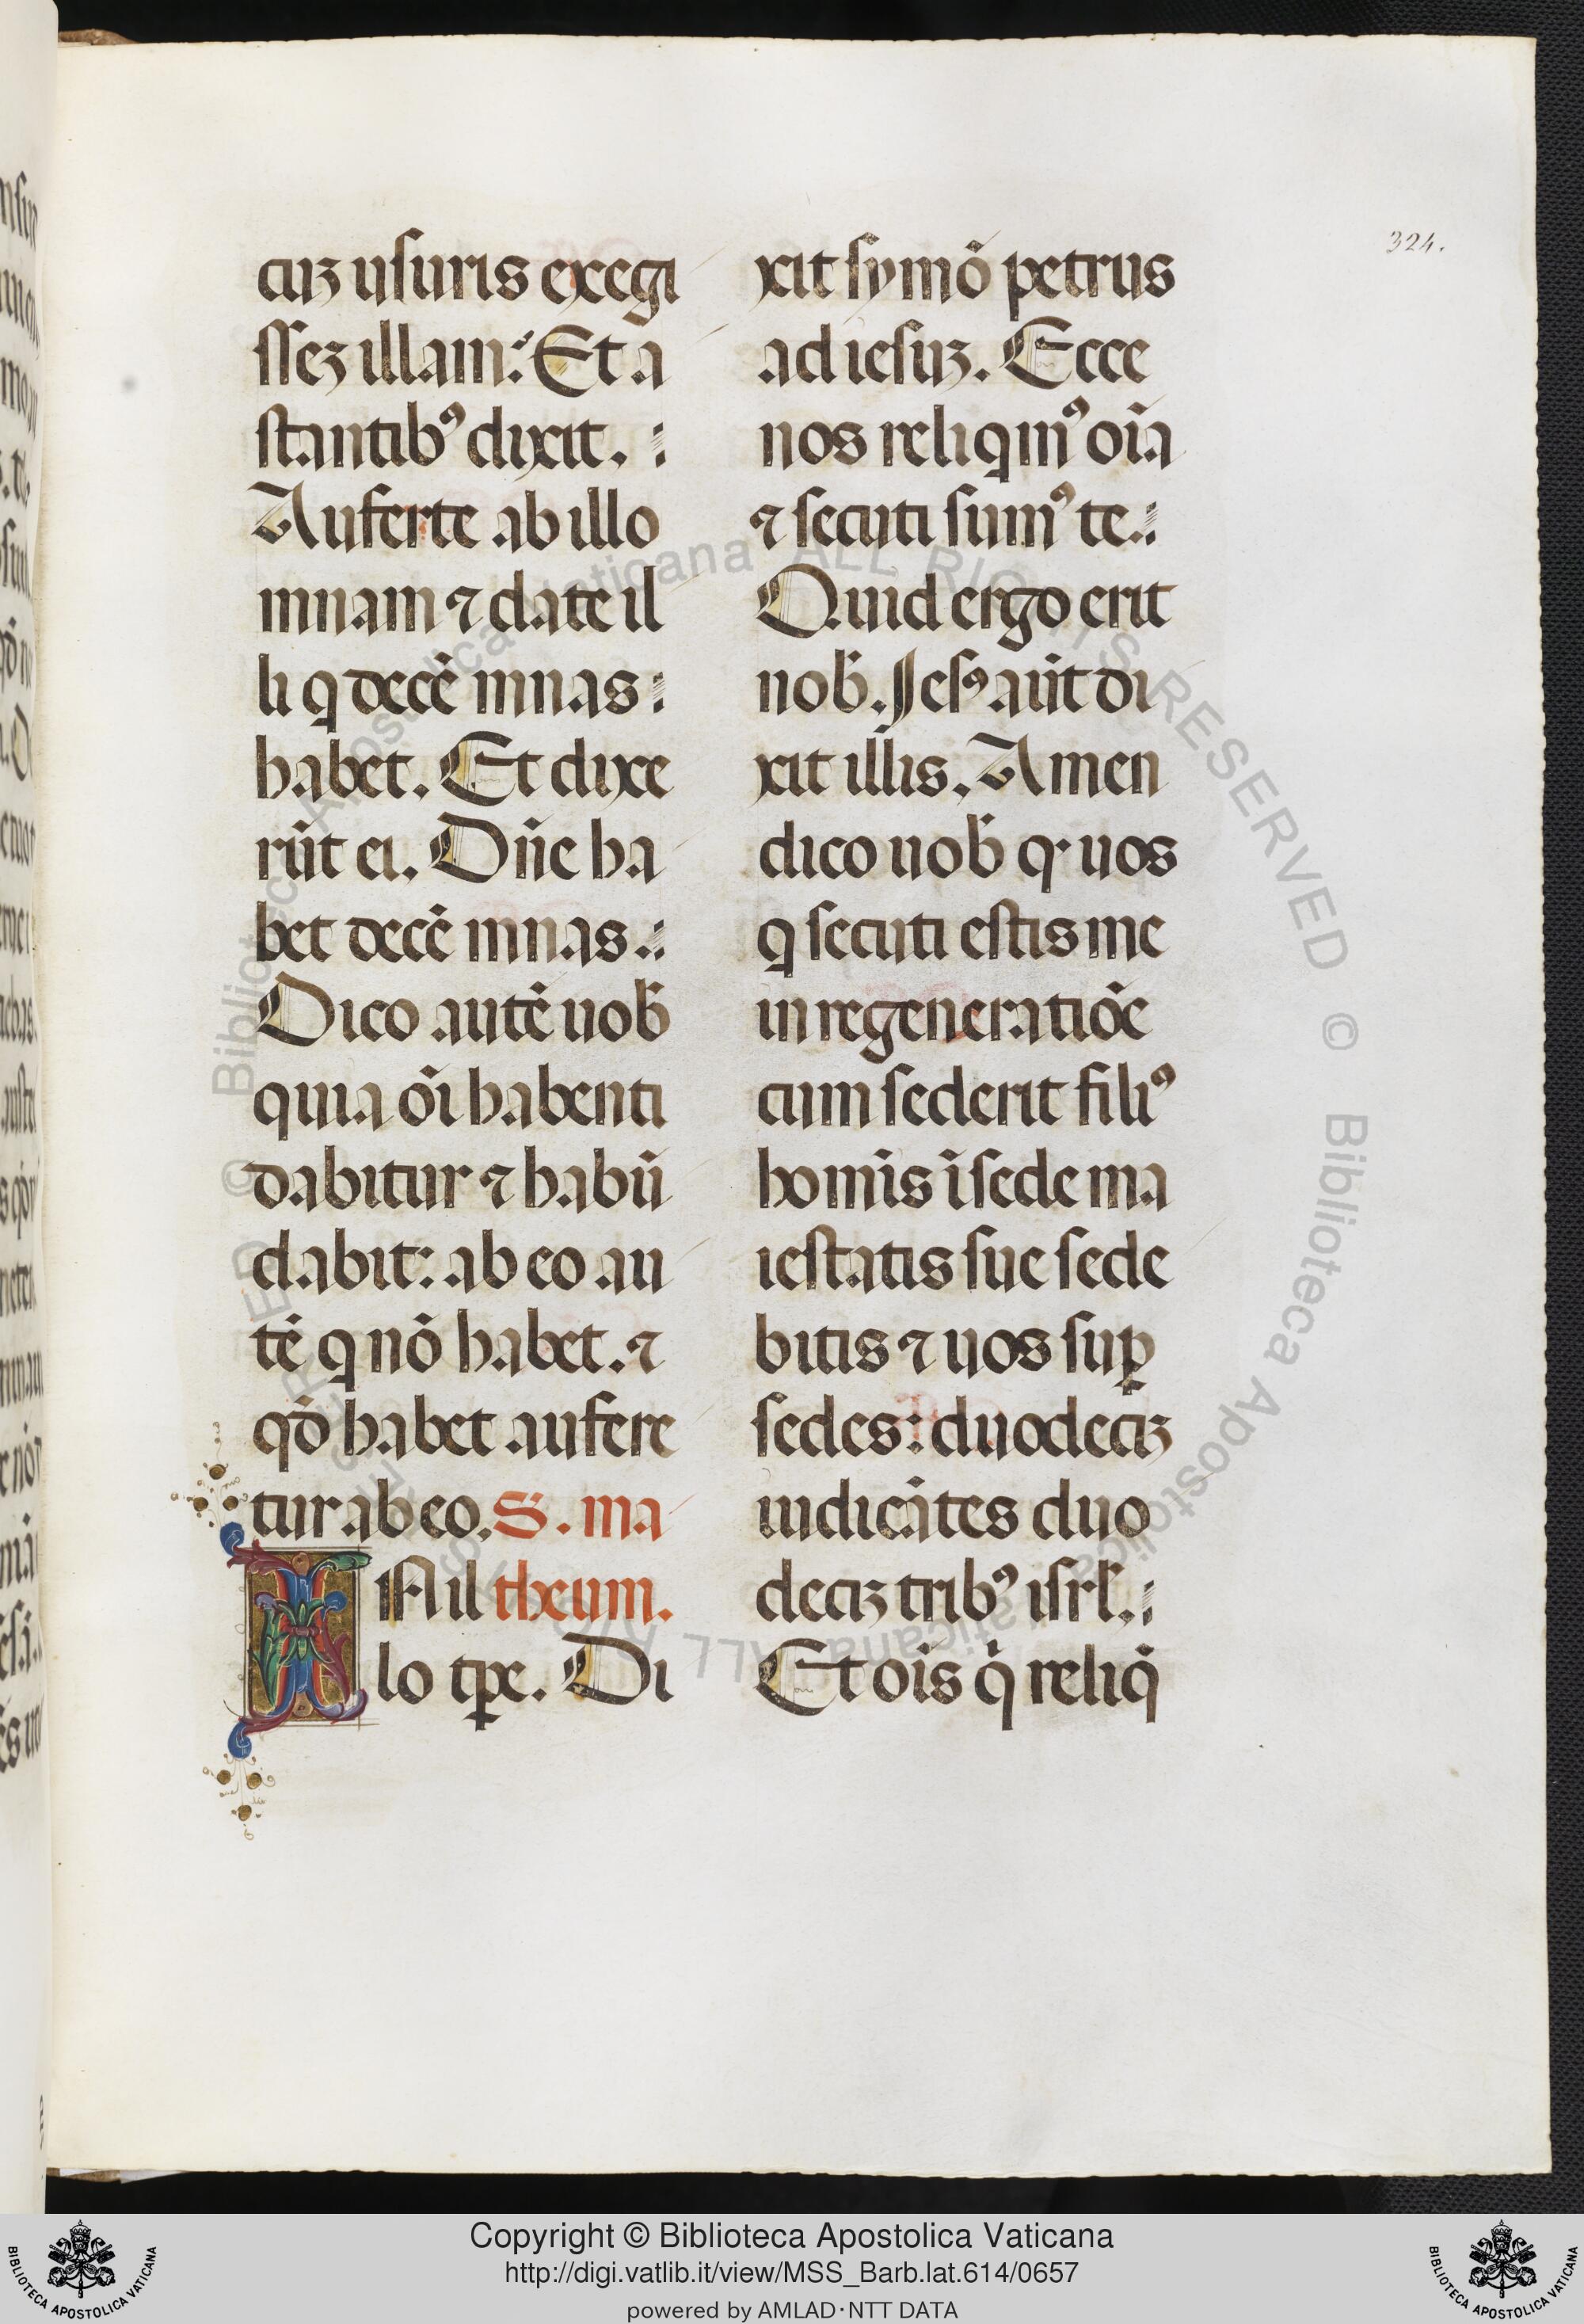 324.
cuꝫ usuris exegi
sseꝫ illam: Et a
stantibꝰ dixit.
Auferte ab illo
mnam ⁊ date il
li q decē mnas
habet. Et dixe
rūt ei. Dñe ha
bet decē mnas.
Dico autē uob̄
quia oī habenti
dabitur ⁊ habū
dabit: ab eo au
tē q nō habet. ⁊
qd̄ habet aufere
tur ab eo. S. ma
IN il theum.
lo tꝑe. Di
xit symō petrus
ad iesuꝫ. Ecce
nos reliqmꝰ oīa
⁊ secuti sumꝰ te.
Quid ergo erit
nob̄. Jesꝰ aūt di
xit illis. Amen
dico uob̄ q uos
q secuti estis me
in regeneratiōe
cum sederit filiꝰ
homīs ī sede ma
iestatis sue sede
bitis ⁊ uos suꝑ
sedes: duodeciꝫ
iudicātes duo
deciꝫ tribꝰ isrl̄.
Et oīs q̇ reliq̇
© Biblioteca Apostolica Vaticana ALL RIGHTS RESERVED © Biblioteca Apostolica Vaticana ALL RIGHTS RESERVED
Copyright © Biblioteca Apostolica Vaticana
http://digi.vatlib.it/view/MSS_Barb.lat.614/0657
powered by AMLAD·NTT DATA
BIBLIOTECA APOSTOLICA VATICANA
BIBLIOTECA APOSTOLICA VATICANA